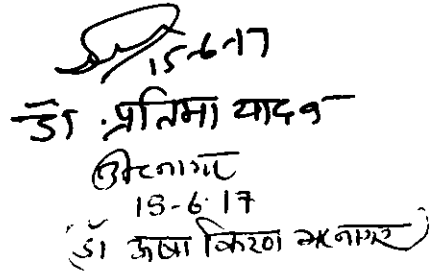 15-6-17
डॉ. प्रतिमा यादव
भटनागर
15-6-17
(डॉ ऊषा किरण भटनागर)